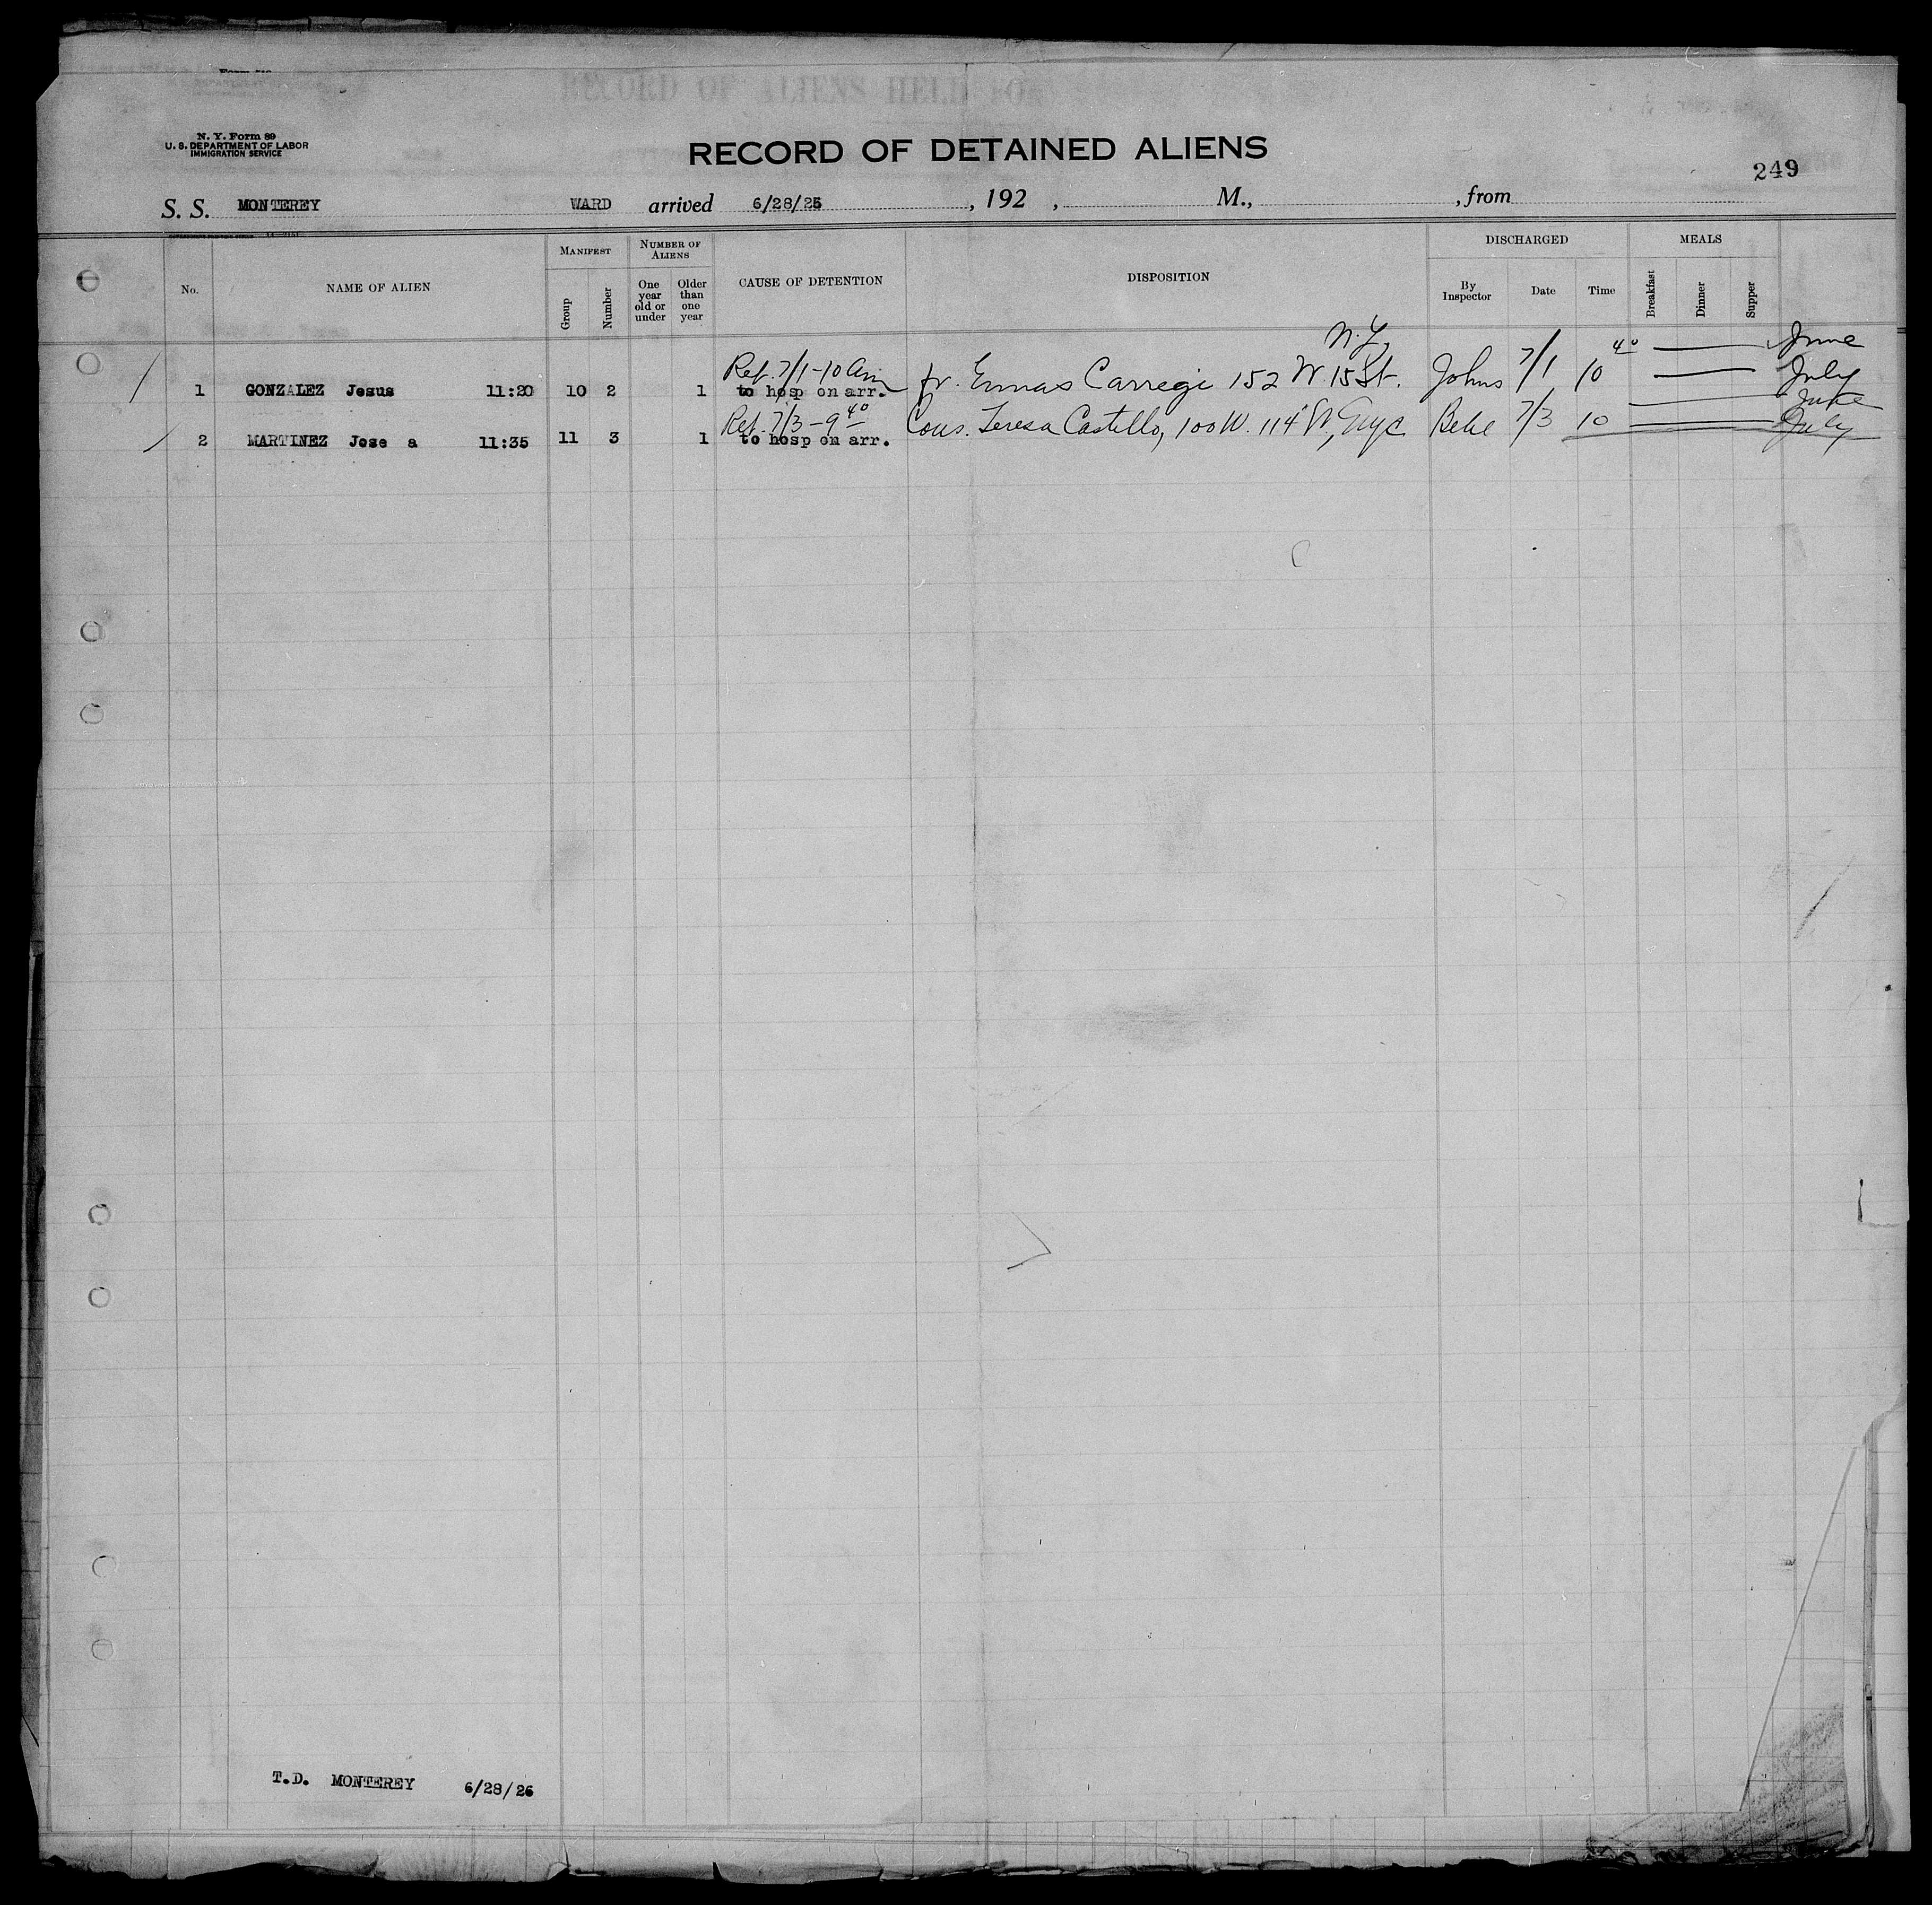 RECORD OF ALIENS HELD FOR
N. Y. Form 89
U. S. DEPARTMENT OF LABOR
IMMIGRATION SERVICE
RECORD OF DETAINED ALIENS
249
S. S. MONTEREY WARD arrived 6/28/26, 192 , M., , from
No. NAME OF ALIEN MANIFEST Group Number NUMBER OF ALIENS One year old or under Older than one year CAUSE OF DETENTION DISPOSITION DISCHARGED By Inspector Date Time MEALS Breakfast Dinner Supper
N.Y. June
Ret. 7/1-10 am 40
1 GONZALEZ Jesus 11:20 10 2 1 to hosp on arr. fr. Carregi 152 W. 15 St. Johns 7/1 10 July
Ret. 7/3-9 40 June
2 MARTINEZ Jose a 11:35 11 3 1 to hosp on arr. Cous. Teresa Castillo, 100 W. 114 St, nyc 7/3 10 July
T.D. MONTEREY 6/28/26